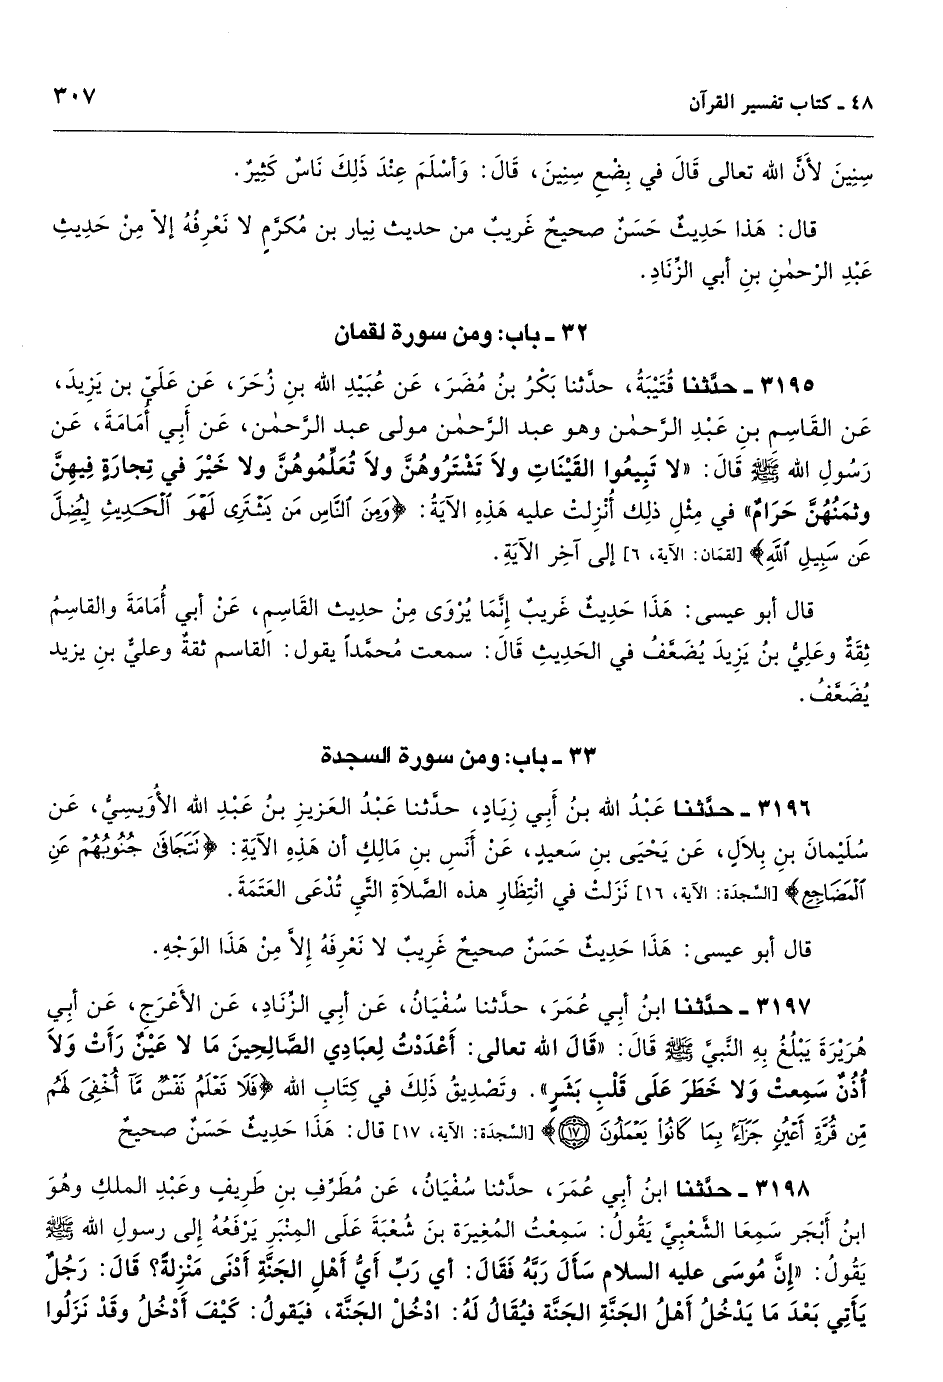 ٤٨ ـ كتاب تفسير القرآن ٣٠٧
سِنِينَ لأَنَّ الله تعالى قَالَ في بِضْعِ سِنِينَ، قَالَ: وَأَسْلَمَ عِنْدَ ذَلِكَ نَاسٌ كَثِيرٌ.
قال: هَذا حَدِيثٌ حَسَنٌ صحيحٌ غَرِيبٌ من حديث نِيار بن مُكرَّمٍ لا نَعْرِفُهُ إلاّ مِنْ حَدِيثِ
عَبْدِ الرّحمٰنِ بنِ أبي الزِّنَادِ.
٣٢ ـ باب: ومن سورة لقمان
٣١٩٥ ـ حدَّثنا قُتَيْبَةُ، حدَّثنا بَكْرُ بنُ مُضَرَ، عَن عُبَيْدِ الله بنِ زُحَرَ، عَن عَلَيِّ بن يَزِيدَ،
عَن القَاسِمِ بنِ عَبْدِ الرَّحمٰن وهو عبد الرَّحمٰن مولى عبد الرَّحمٰن، عَن أَبِي أُمَامَةَ، عَن
رَسُولِ الله ﷺ قَالَ: «لا تَبِيعُوا القَيْنَاتِ ولاَ تَشْتَرُوهُنَّ ولاَ تُعَلِّمُوهُنَّ ولا خَيْرَ في تِجارَةٍ فِيهِنَّ
وثمَنُهُنَّ حَرَامٌ» في مِثْلِ ذلِكَ أُنْزِلتْ عليه هَذِهِ الآيَةُ: ﴿وَمِنَ ٱلنَّاسِ مَن يَشْتَرِى لَهْوَ ٱلْحَدِيثِ لِيُضِلَّ
عَن سَبِيلِ ٱللَّهِ﴾ [لقمَان: الآية، ٦] إلى آخِر الآيَةِ.
قال أبو عيسى: هَذَا حَدِيثٌ غَرِيبٌ إنَّمَا يُرْوَى مِنْ حديث القَاسِمِ، عَنْ أبي أُمَامَةَ والقاسِمُ
ثِقَةٌ وعَلِيُّ بنُ يَزِيدَ يُضَعَّفُ في الحَدِيثِ قَالَ: سمعت مُحمَّداً يقول: القاسم ثقةٌ وعليُّ بنِ يزيد
يُضَعَّفُ.
٣٣ ـ باب: ومن سورة السجدة
٣١٩٦ ـ حدَّثنا عَبْدُ الله بنُ أَبِي زِيَادٍ، حدَّثنا عَبْدُ العَزيزِ بنُ عَبْدِ الله الأُوَيسِيُّ، عَن
سُلَيْمانَ بنِ بِلاَلٍ، عَن يَحْيَى بنِ سَعيدٍ، عَنْ أَنَسِ بنِ مَالِكٍ أن هَذِهِ الآيَةِ: ﴿نَتَجَافَىٰ جُنُوبُهُمْ عَنِ
ٱلْمَضَاجِعِ﴾ [السَّجدَة: الآية، ١٦] نَزَلتْ في انْتِظَارِ هذه الصَّلاَةِ الَّتي تُدْعَى العَتَمَةَ.
قال أبو عيسى: هَذَا حَدِيثٌ حَسَنٌ صحيحٌ غَرِيبٌ لا نَعْرِفَهُ إلاَّ مِنْ هَذَا الوَجْهِ.
٣١٩٧ ـ حدَّثنا ابنُ أبي عُمَرَ، حدَّثنا سُفْيَانُ، عَن أبي الزِّنَادِ، عَن الأَعْرَجِ، عَن أبي
هُرَيْرَةَ يَبْلُغُ بِهِ النَّبيَّ ﷺ قَالَ: «قَالَ الله تعالى: أَعْدَدْتُ لِعبَادِي الصَّالِحِينَ مَا لا عَيْنٌ رَأَتْ وَلاَ
أُذُنٌ سَمِعتْ وَلا خَطَرَ عَلَى قَلْبِ بَشَرٍ». وتَصْدِيقُ ذَلِكَ في كِتَابِ الله ﴿فَلَا تَعْلَمُ نَفْسٌ مَّآ أُخْفِىَ لَهُم
مِّن قُرَّةِ أَعْيُنٍ جَزَآءًۢ بِمَا كَانُواْ يَعْمَلُونَ ۝١٧﴾ [السَّجدَة: الآية، ١٧] قال: هَذَا حَدِيثٌ حَسَنٌ صحيحٌ
٣١٩٨ ـ حدَّثنا ابنُ أبي عُمَرَ، حدَّثنا سُفْيَانُ، عَن مُطَرِّفِ بنِ طَرِيفٍ وعَبْدِ الملكِ وهُوَ
ابنُ أَبْجَر سَمِعَا الشَّعْبِيَّ يَقُولُ: سَمِعْتُ المُغِيرَة بنَ شُعْبَةَ عَلَى المِنْبَرِ يَرْفَعُهُ إلى رسولِ الله ﷺ
يَقُولُ: «إنَّ مُوسَى عليه السلام سَأَلَ رَبَّهُ فَقَالَ: أي رَبِّ أيُّ أهْلِ الجَنَّةِ أدْنَى مَنْزِلةً؟ قَالَ: رَجُلٌ
يَأتي بَعْدَ مَا يَدْخُلُ أهْلُ الجَنَّةِ الجَنَّة فيُقَالُ لَهُ: ادْخُلْ الجَنَّة، فيَقولُ: كَيْفَ أَدْخُلُ وقَدْ نَزَلُوا